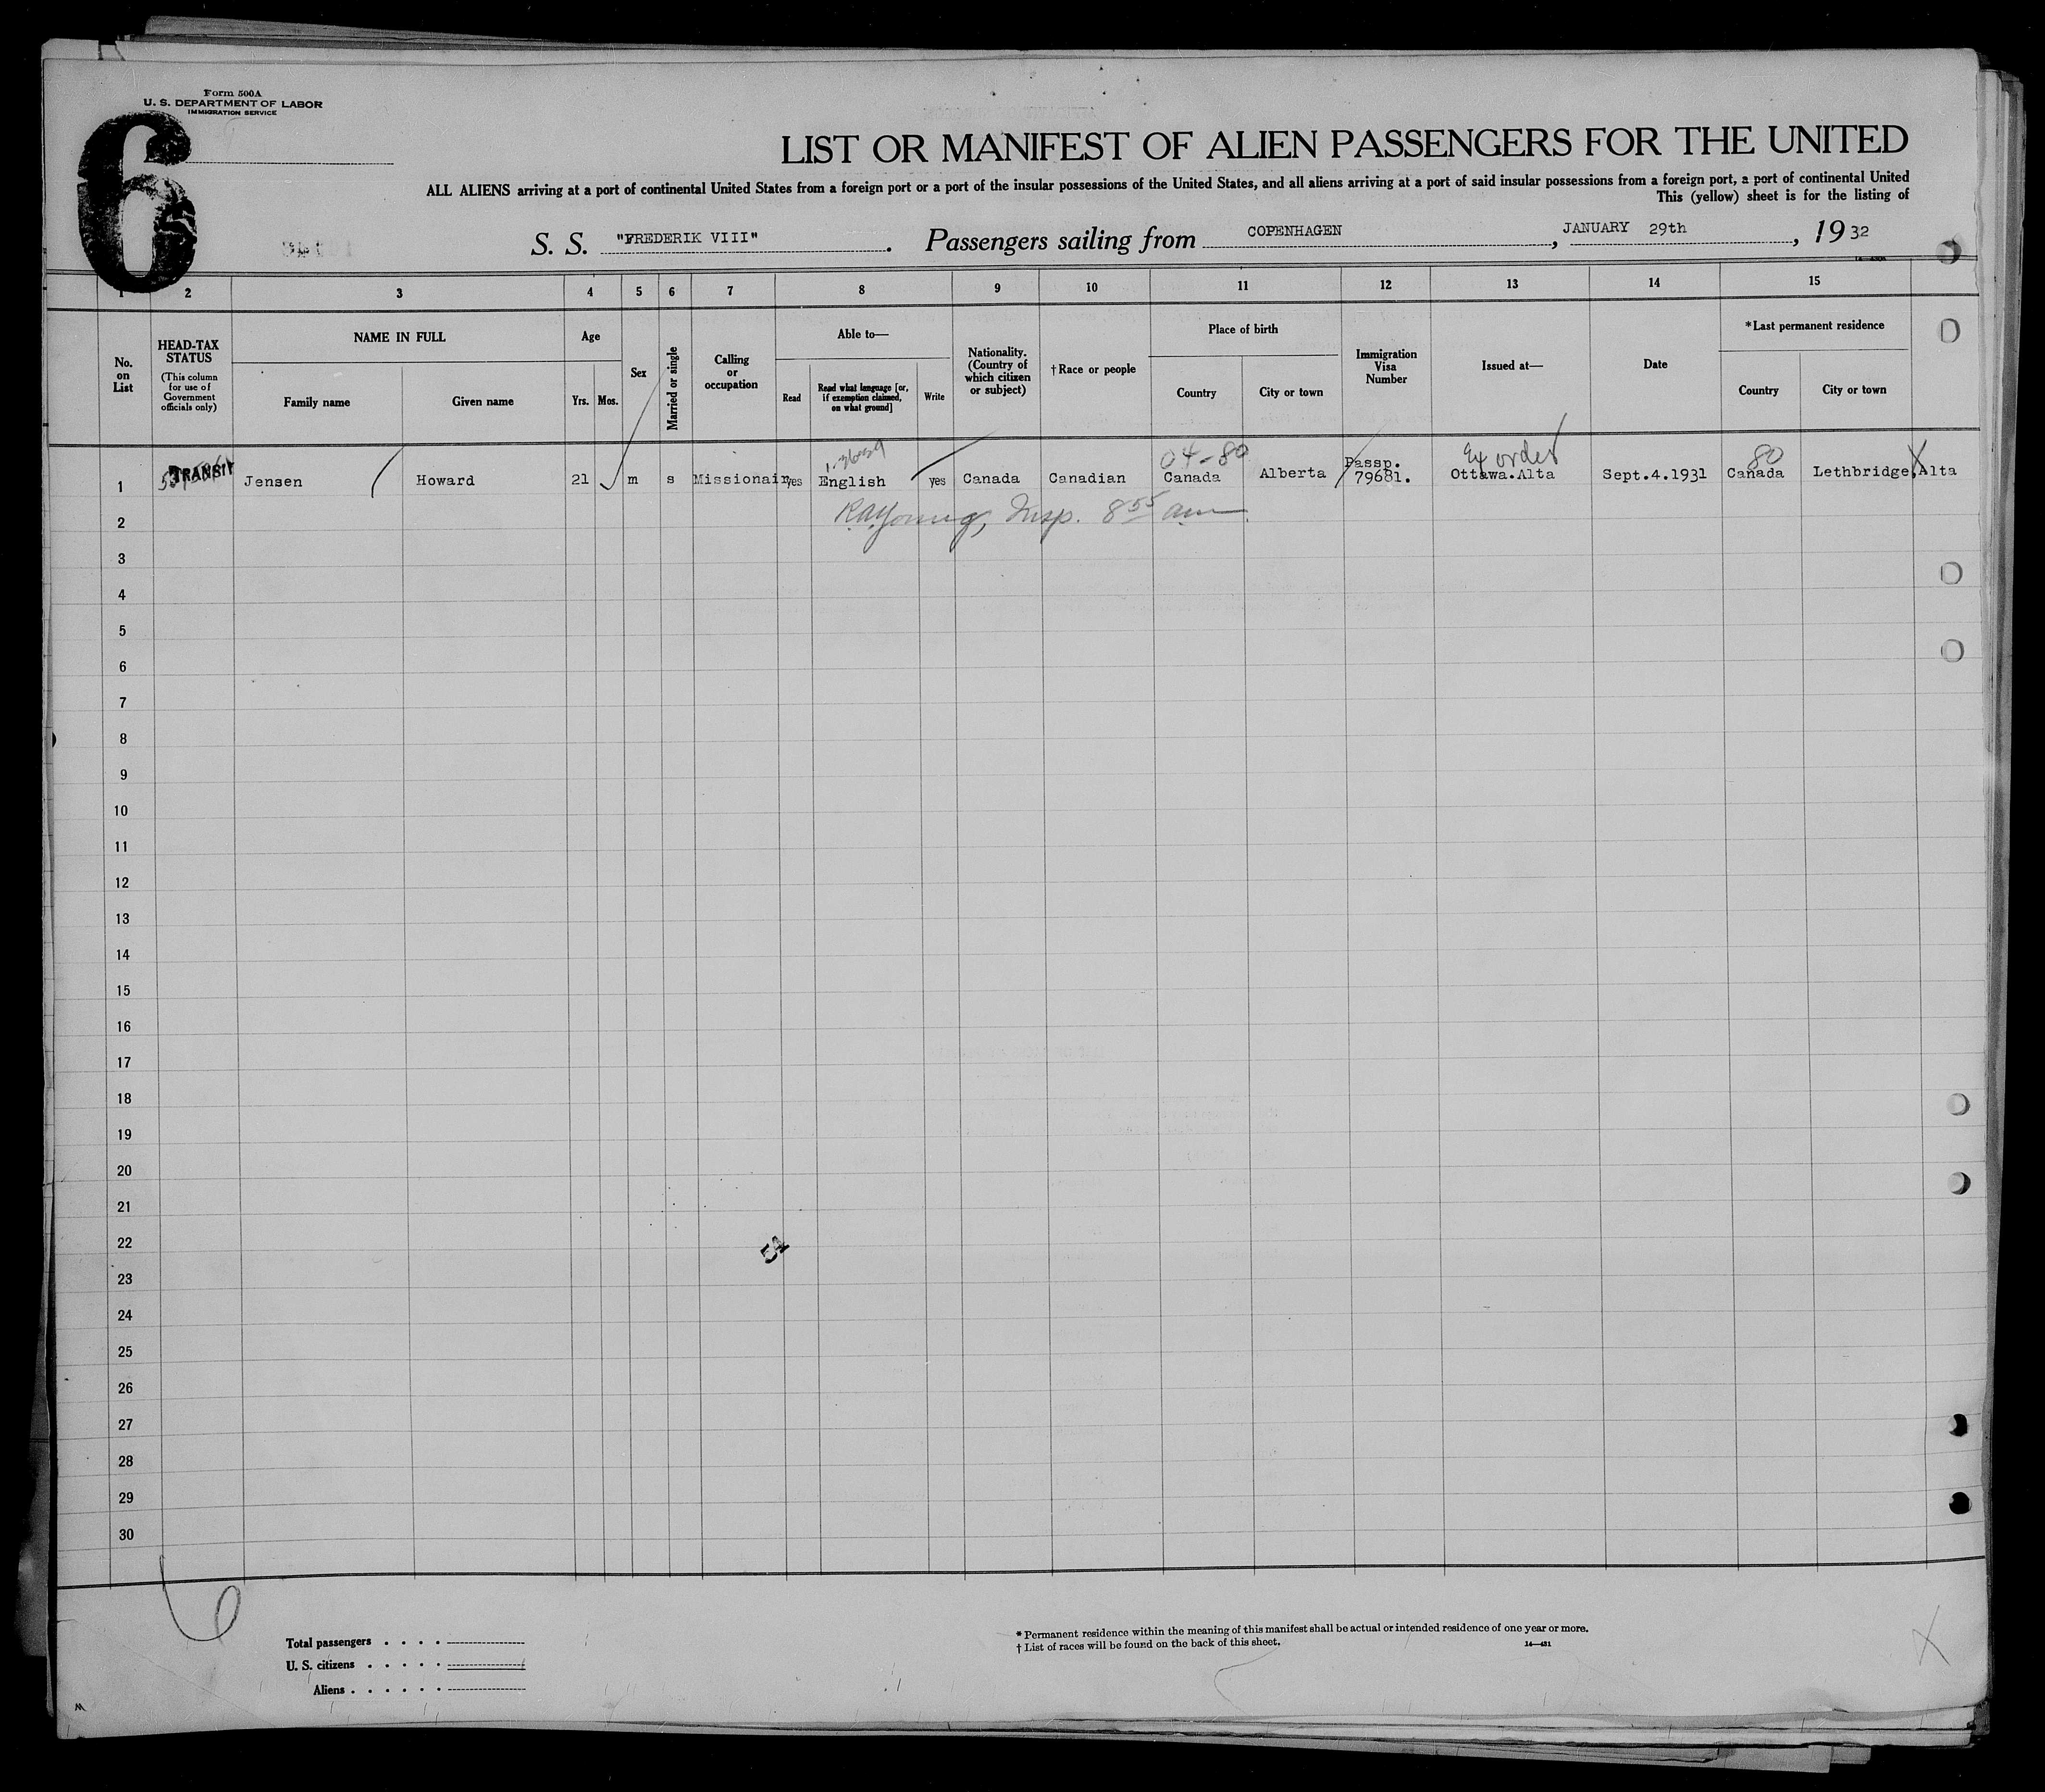 Form 500A
U. S. DEPARTMENT OF LABOR
IMMIGRATION SERVICE
6
LIST OR MANIFEST OF ALIEN PASSENGERS FOR THE UNITED
ALL ALIENS arriving at a port of continental United States from a foreign port or a port of the insular possessions of the United States, and all aliens arriving at a port of said insular possessions from a foreign port, a port of continental United
This (yellow) sheet is for the listing of
S. S. "FREDERIK VIII" . Passengers sailing from COPENHAGEN , JANUARY 29th , 19 32
1 2 3 4 5 6 7 8 9 10 11 12 13 14 15
No. on List
HEAD-TAX STATUS
(This column for use of Government officials only)
NAME IN FULL
Family name
Given name
Age
Yrs.
Mos.
Sex
Married or single
Calling or occupation
Able to—
Read
Read what language [or, if exemption claimed, on what ground]
Write
Nationality. (Country of which citizen or subject)
†Race or people
Place of birth
Country
City or town
Immigration Visa Number
Issued at—
Date
*Last permanent residence
Country
City or town
04-80 Ex order 80
1 TRANSIT Jensen Howard 21 m s Missionair yes English yes Canada Canadian Canada Alberta Passp. 79681. Ottawa.Alta Sept.4.1931 Canada Lethbridge,Alta
2 Insp. 8 55 am
3
4
5
6
7
8
9
10
11
12
13
14
15
16
17
18
19
20
21
22
23
24
25
26
27
28
29
30
6
Total passengers . . . .
U. S. citizens . . . . .
Aliens . . . . . .
* Permanent residence within the meaning of this manifest shall be actual or intended residence of one year or more.
† List of races will be found on the back of this sheet.
14—431